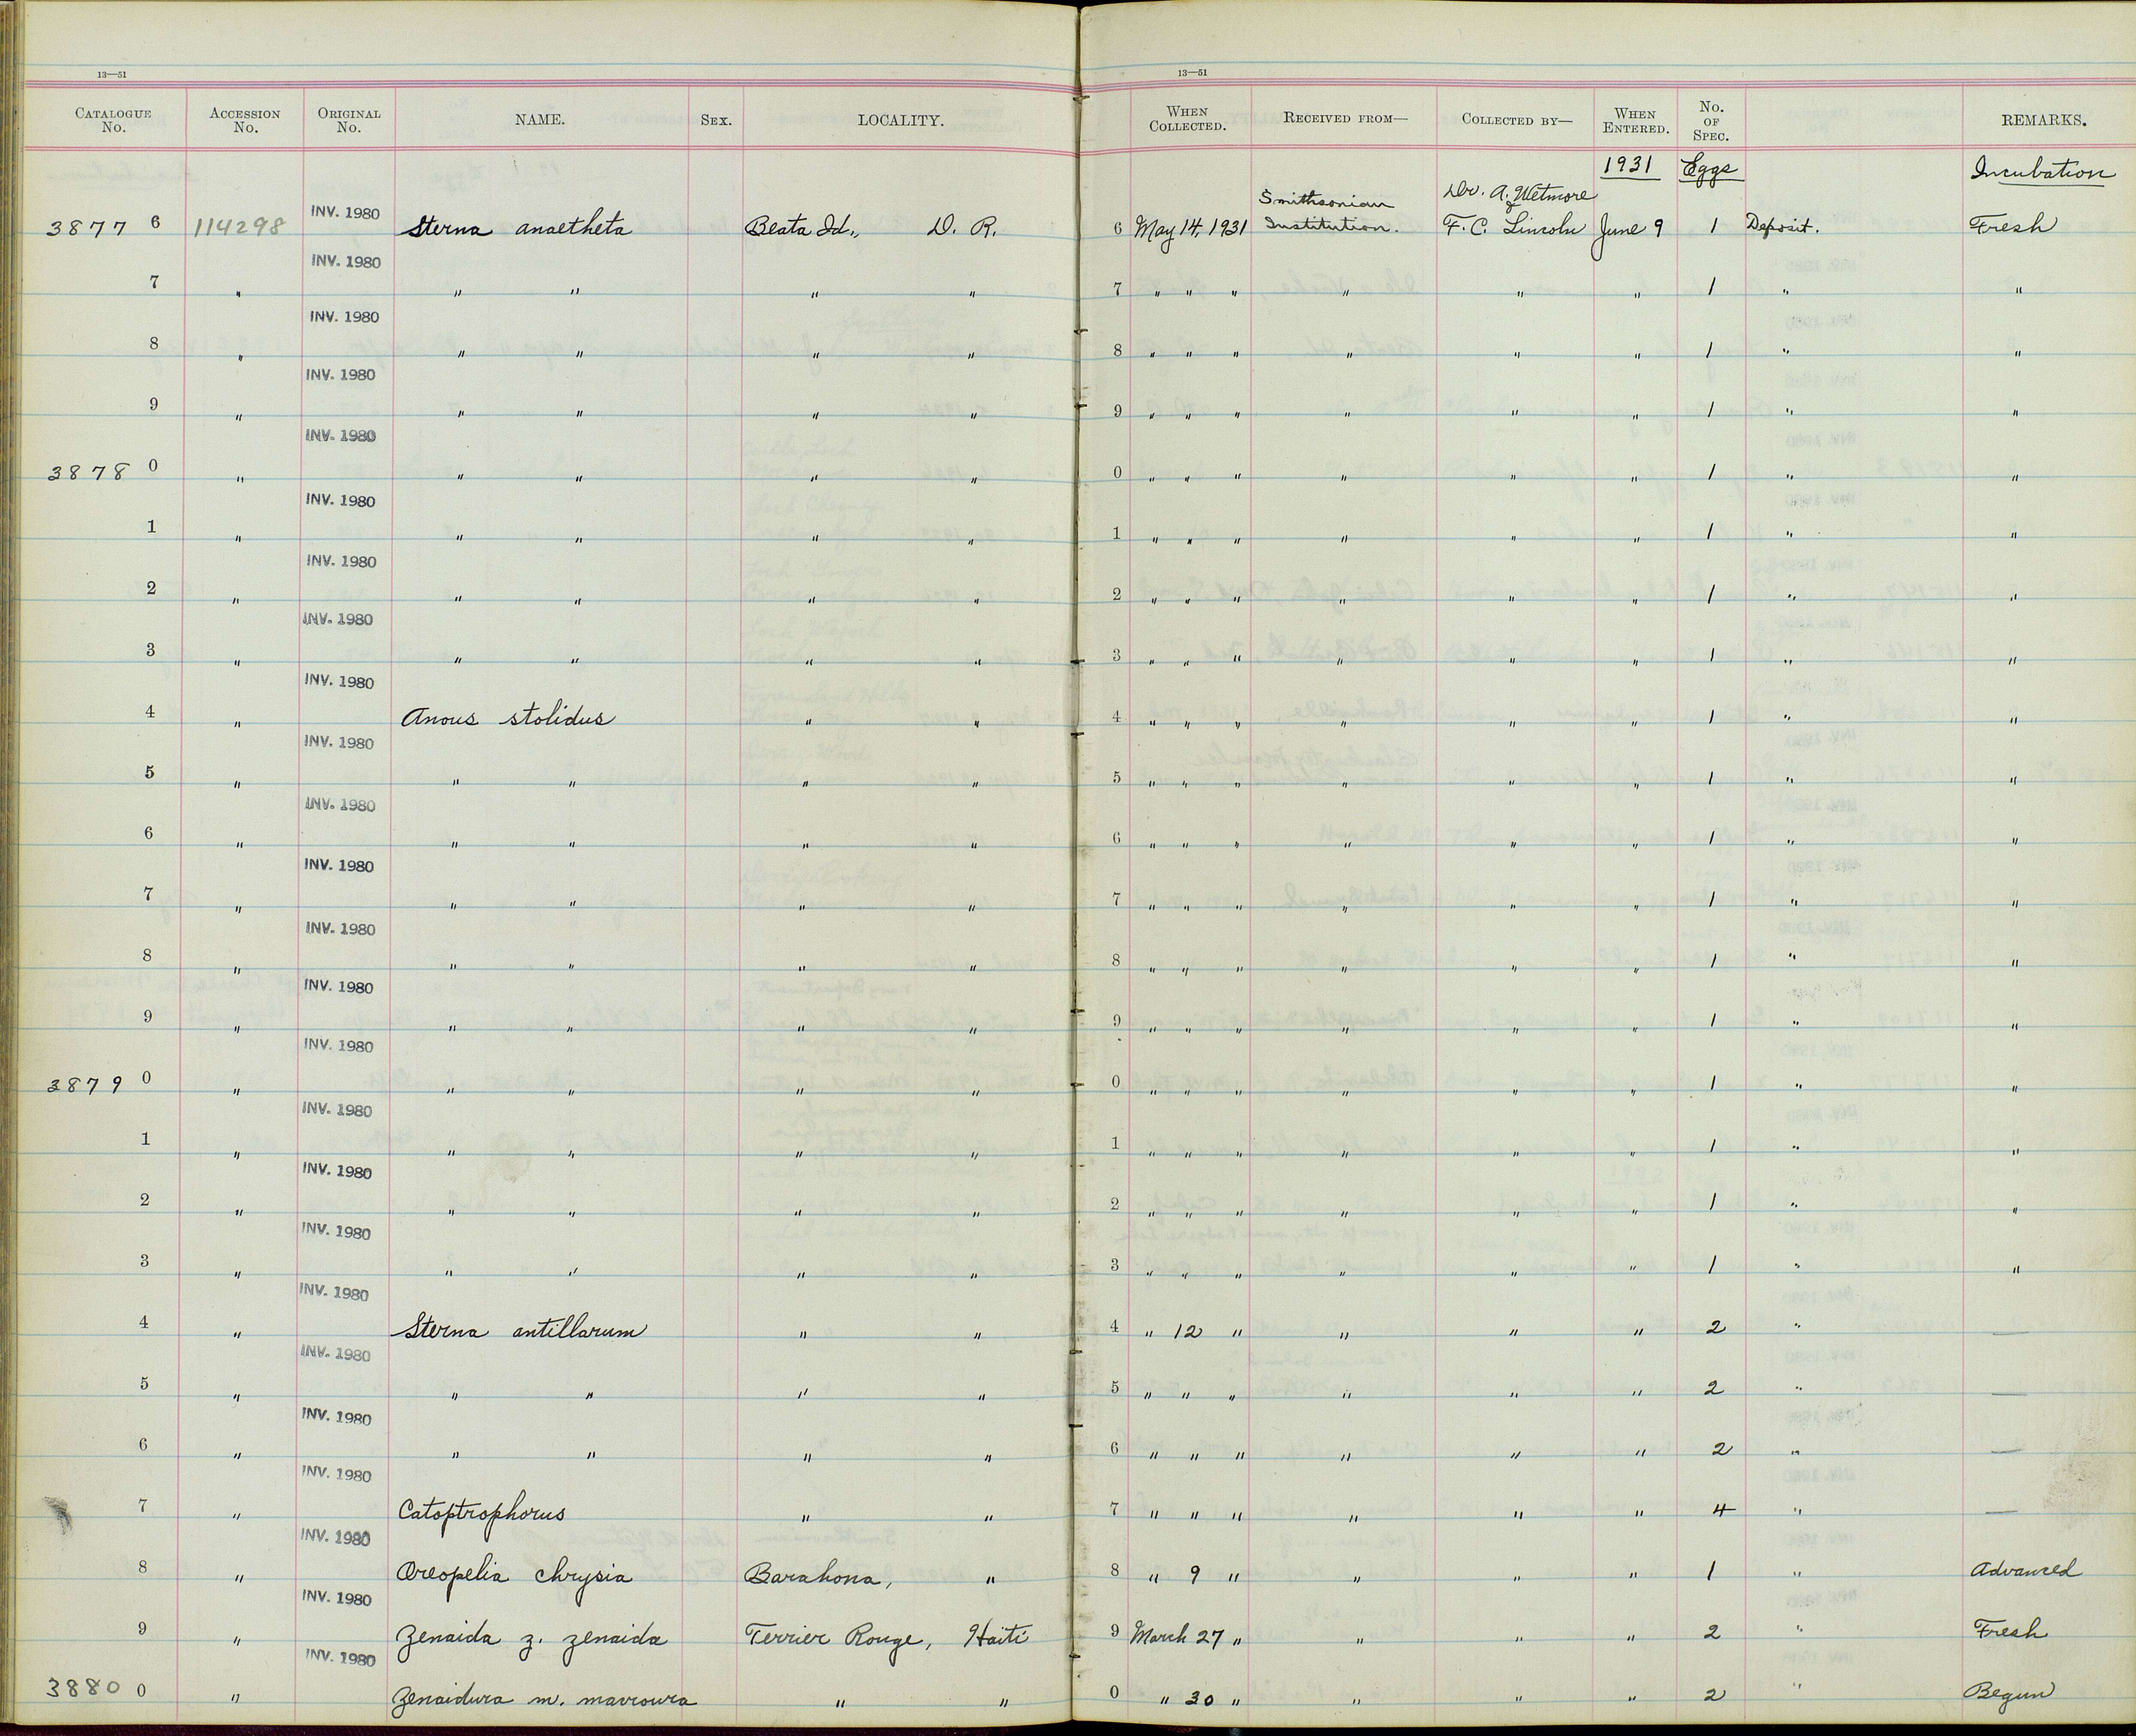 13—51 13—51
CATALOGUE No. ACCESSION No. ORIGINAL No. NAME. SEX. LOCALITY. WHEN COLLECTED. RECEIVED FROM— COLLECTED BY— WHEN ENTERED. No. OF SPEC. REMARKS.
1931 Eggs Incubation
38776 114298 INV. 1980 Sterna anaetheta Beata Id., D. R. 6 May 14, 1931 Smithsonian Institution. Dr. A. Wetmore & F. C. Lincoln June 9 1 Deposit. Fresh
7 " INV. 1980 " " " " 7 " " " " " " 1 " "
8 " INV. 1980 " " " " 8 " " " " " " 1 " "
9 " INV. 1980 " " " " 9 " " " " " " 1 " "
38780 " INV. 1980 " " " " 0 " " " " " " 1 " "
1 " INV. 1980 " " " " 1 " " " " " " 1 " "
2 " INV. 1980 " " " " 2 " " " " " " 1 " "
3 " INV. 1980 " " " " 3 " " " " " " 1 " "
4 " INV. 1980 Anous stolidus " " 4 " " " " " " 1 " "
5 " INV. 1980 " " " " 5 " " " " " " 1 " "
6 " INV. 1980 " " " " 6 " " " " " " 1 " "
7 " INV. 1980 " " " " 7 " " " " " " 1 " "
8 " INV. 1980 " " " " 8 " " " " " " 1 " "
9 " INV. 1980 " " " " 9 " " " " " " 1 " "
38790 " INV. 1980 " " " " 0 " " " " " " 1 " "
1 " INV. 1980 " " " " 1 " " " " " " 1 " "
2 " INV. 1980 " " " " 2 " " " " " " 1 " "
3 " INV. 1980 " " " " 3 " " " " " " 1 " "
4 " INV. 1980 Sterna antillarum " " 4 " 12 " " " " 2 " —
5 " INV. 1980 " " " " 5 " " " " " " 2 " —
6 " INV. 1980 " " " " 6 " " " " " " 2 " —
7 " INV. 1980 Catoptrophorus " " 7 " " " " " " 4 " —
8 " INV. 1980 Oreopelia chrysia Barahona, " 8 " 9 " " " " 1 " Advanced
9 " INV. 1980 Zenaida z. zenaida Terrier Rouge, Haiti 9 March 27 " " " " 2 " Fresh
38800 " INV. 1980 Zenaidura m. macroura " " 0 " 30 " " " " 2 " Begun